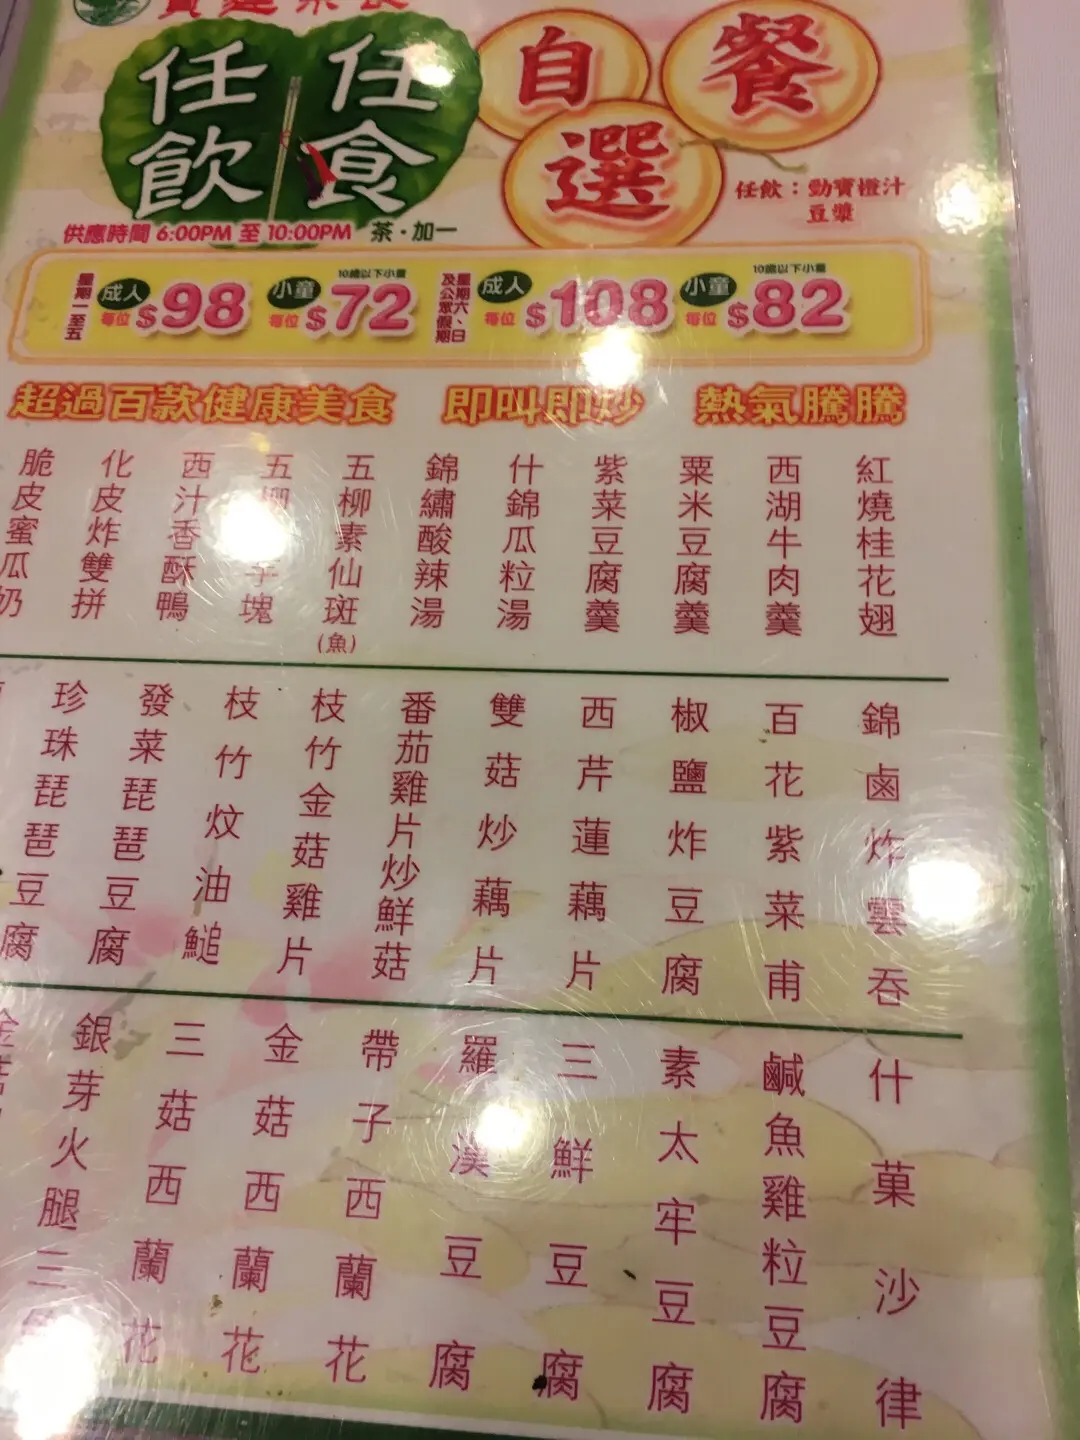 素食
任食
任飲
自選餐
任飲：勁寶橙汁
豆漿
供應時間 6:00PM 至 10:00PM 茶·加一
星期一至五
成人
每位 $98
10歲以下小童
小童
每位 $72
星期六、日
及公眾假期
成人
每位 $108
10歲以下小童
小童
每位 $82
超過百款健康美食 即叫即炒 熱氣騰騰
紅燒桂花翅
西湖牛肉羹
粟米豆腐羹
紫菜豆腐羹
什錦瓜粒湯
錦繡酸辣湯
五柳素仙斑
(魚)
五柳芋塊
西汁香酥鴨
化皮炸雙拼
脆皮蜜瓜奶
錦鹵炸雲吞
百花紫菜甫
椒鹽炸豆腐
西芹蓮藕片
雙菇炒藕片
番茄雞片炒鮮菇
枝竹金菇雞片
枝竹炆油䱽
發菜琵琶豆腐
珍珠琵琶豆腐
什菓沙律
鹹魚雞粒豆腐
素太牢豆腐
三鮮豆腐
羅漢豆腐
帶子西蘭花
金菇西蘭花
三菇西蘭花
銀芽火腿三